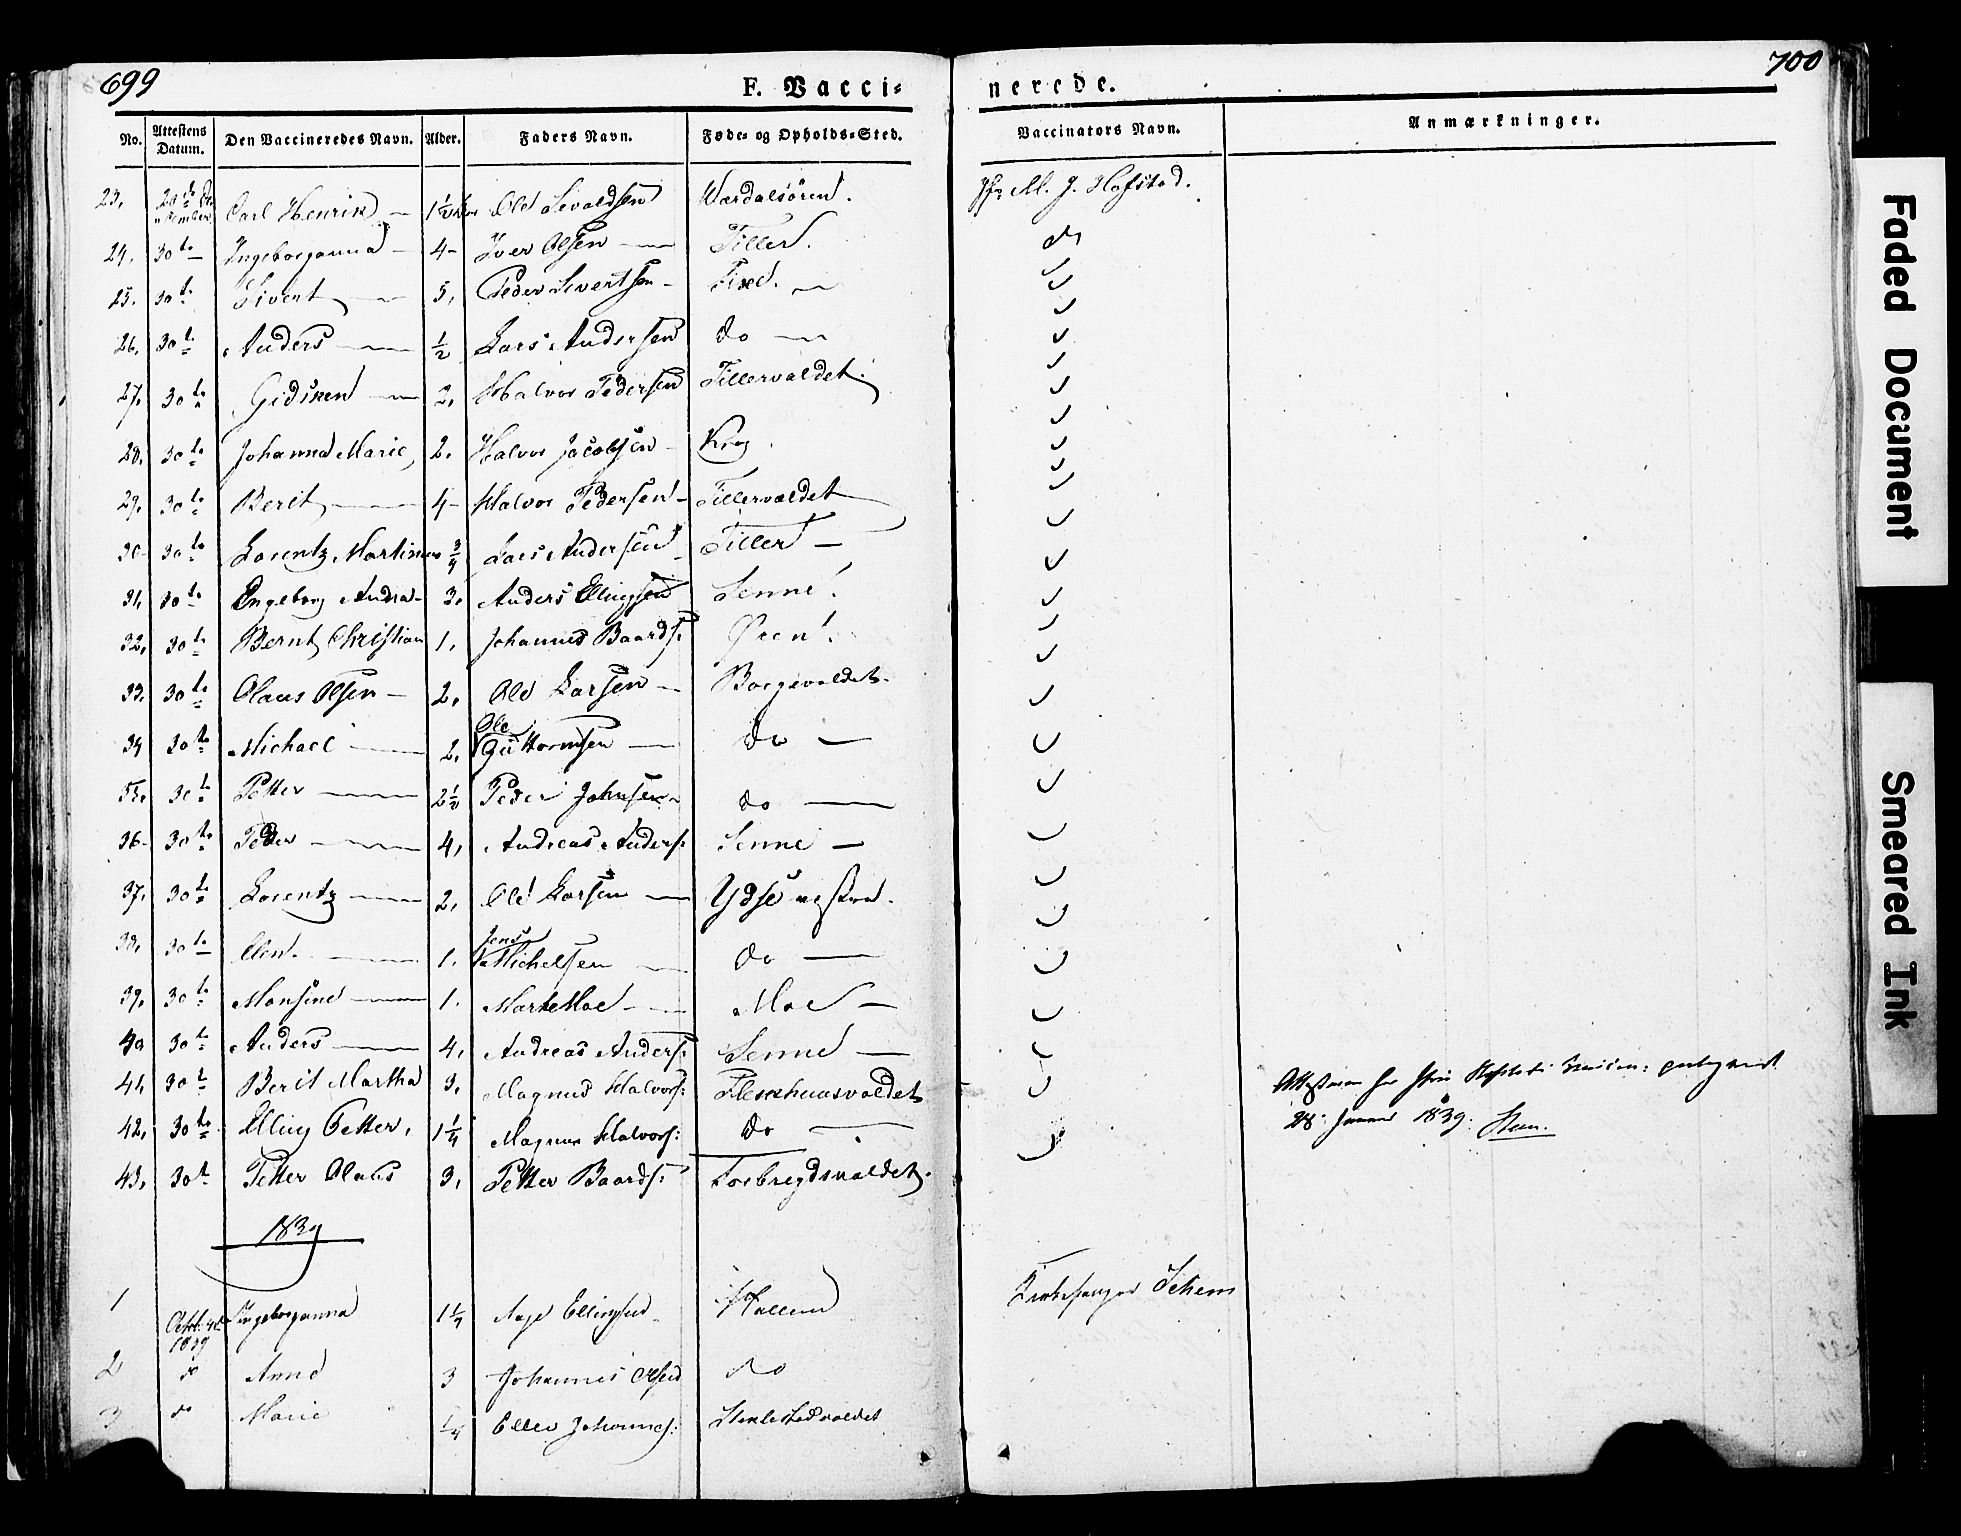 699
F. Vacci-
nerede.
700
No. Attestens Datum. Den Vaccineredes Navn. Alder. Faders Navn. Føde- og Opholds-Sted. Vaccinators Navn. Anmærkninger.
23, Carl Henrik — 1½ Ole Sevaldsen Værdalsören. M. J. Hofstad.
24, 30te Ingeboranna — 4 - Iver Olsen — Tiller. do
25. 30te Sivert — 5, Peder Sivertsen - —
26, 30te Anders — ½ Lars Andersen do —
27, 30te Gidsken — 2, Halvor Pedersen Tillervaldet.
28, 30te Johanna Marie, 2, Halvor Jacobsen - Krog.
29, 30te Berit — 4 - Halvor Pedersen - Tillervaldet
30 - 30te Lorentz Martinus ¾ Lars Andersen - Tiller —
31, 30te Ingeborg Andrea - 3, Anders Ellingsen Senne.
32, 30te Bernt Christian 1, Johannes Baards: Øren.
33, 30te Olaus Olsen — 2, Ole Larsen — Borgevaldet.
34 30te Michael — 2, Ole Guttormsen — do —
35, 30te Petter — 2½ Peder Johnsen - do —
36 - 30te Peder — 4, Andreas Anders: Senne —
37, 30te Lorentz — 2, Ole Larsen — Ydse
38, 30te Elen. — 1. Jens Michelsen — do —
39, 30te Monsine — 1. — Moe —
40 30te Anders — 4, Andreas Anders: Senne —
41, 30te Berit Martha 3, Magnus Halvors: Fleskhuusvaldet
42, 30te Elling Petter, 1¼ Magnus Halvors: do —
43, 30te Petter Olaus 3, Petter Baards: Forbregdsvaldet.
28. Januar 1839.
1839
1 Octbr: 1839 Ingeboranna 1¼ Aage Ellingsen - Hallem Kirkesanger Schem
2 do Anne 3 Johannes Olsen do
3 do Marie ¼ Eller Johannes: Stiklestadvaldet
Faded Document
Smeared Ink